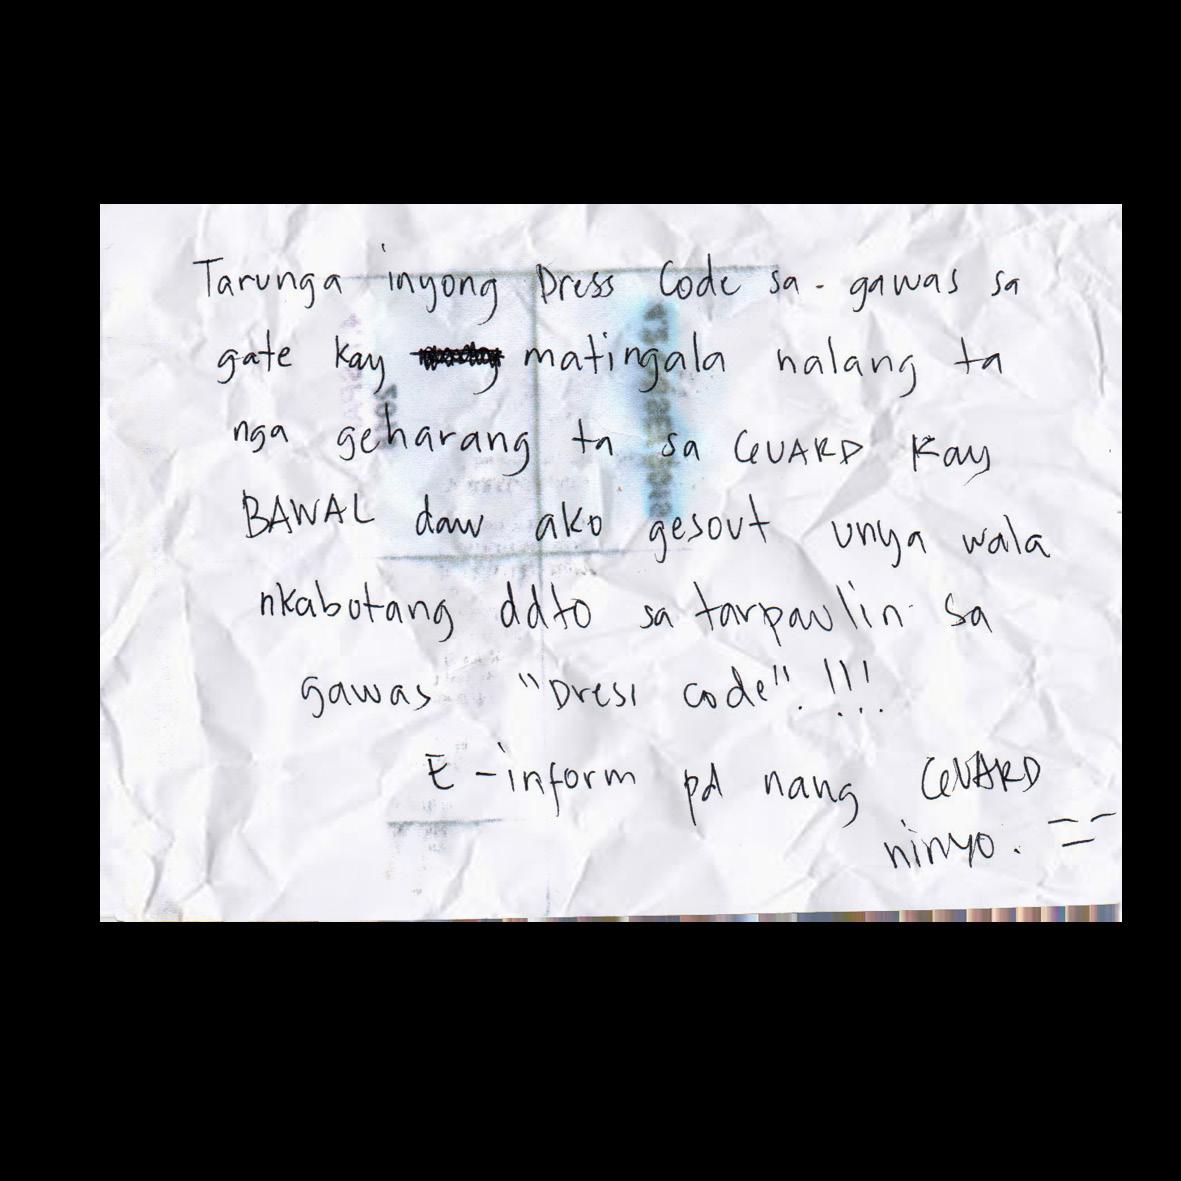 Tarunga inyong Dress Code sa. gawas sa
gate kay matingala nalang ta
nga geharang ta sa GUARD kay
BAWAL daw ako gesout unya wala
nkabotang ddto sa tarpaulin sa
gawas "Dress code". !!!
E-inform pd nang GUARD
ninyo.